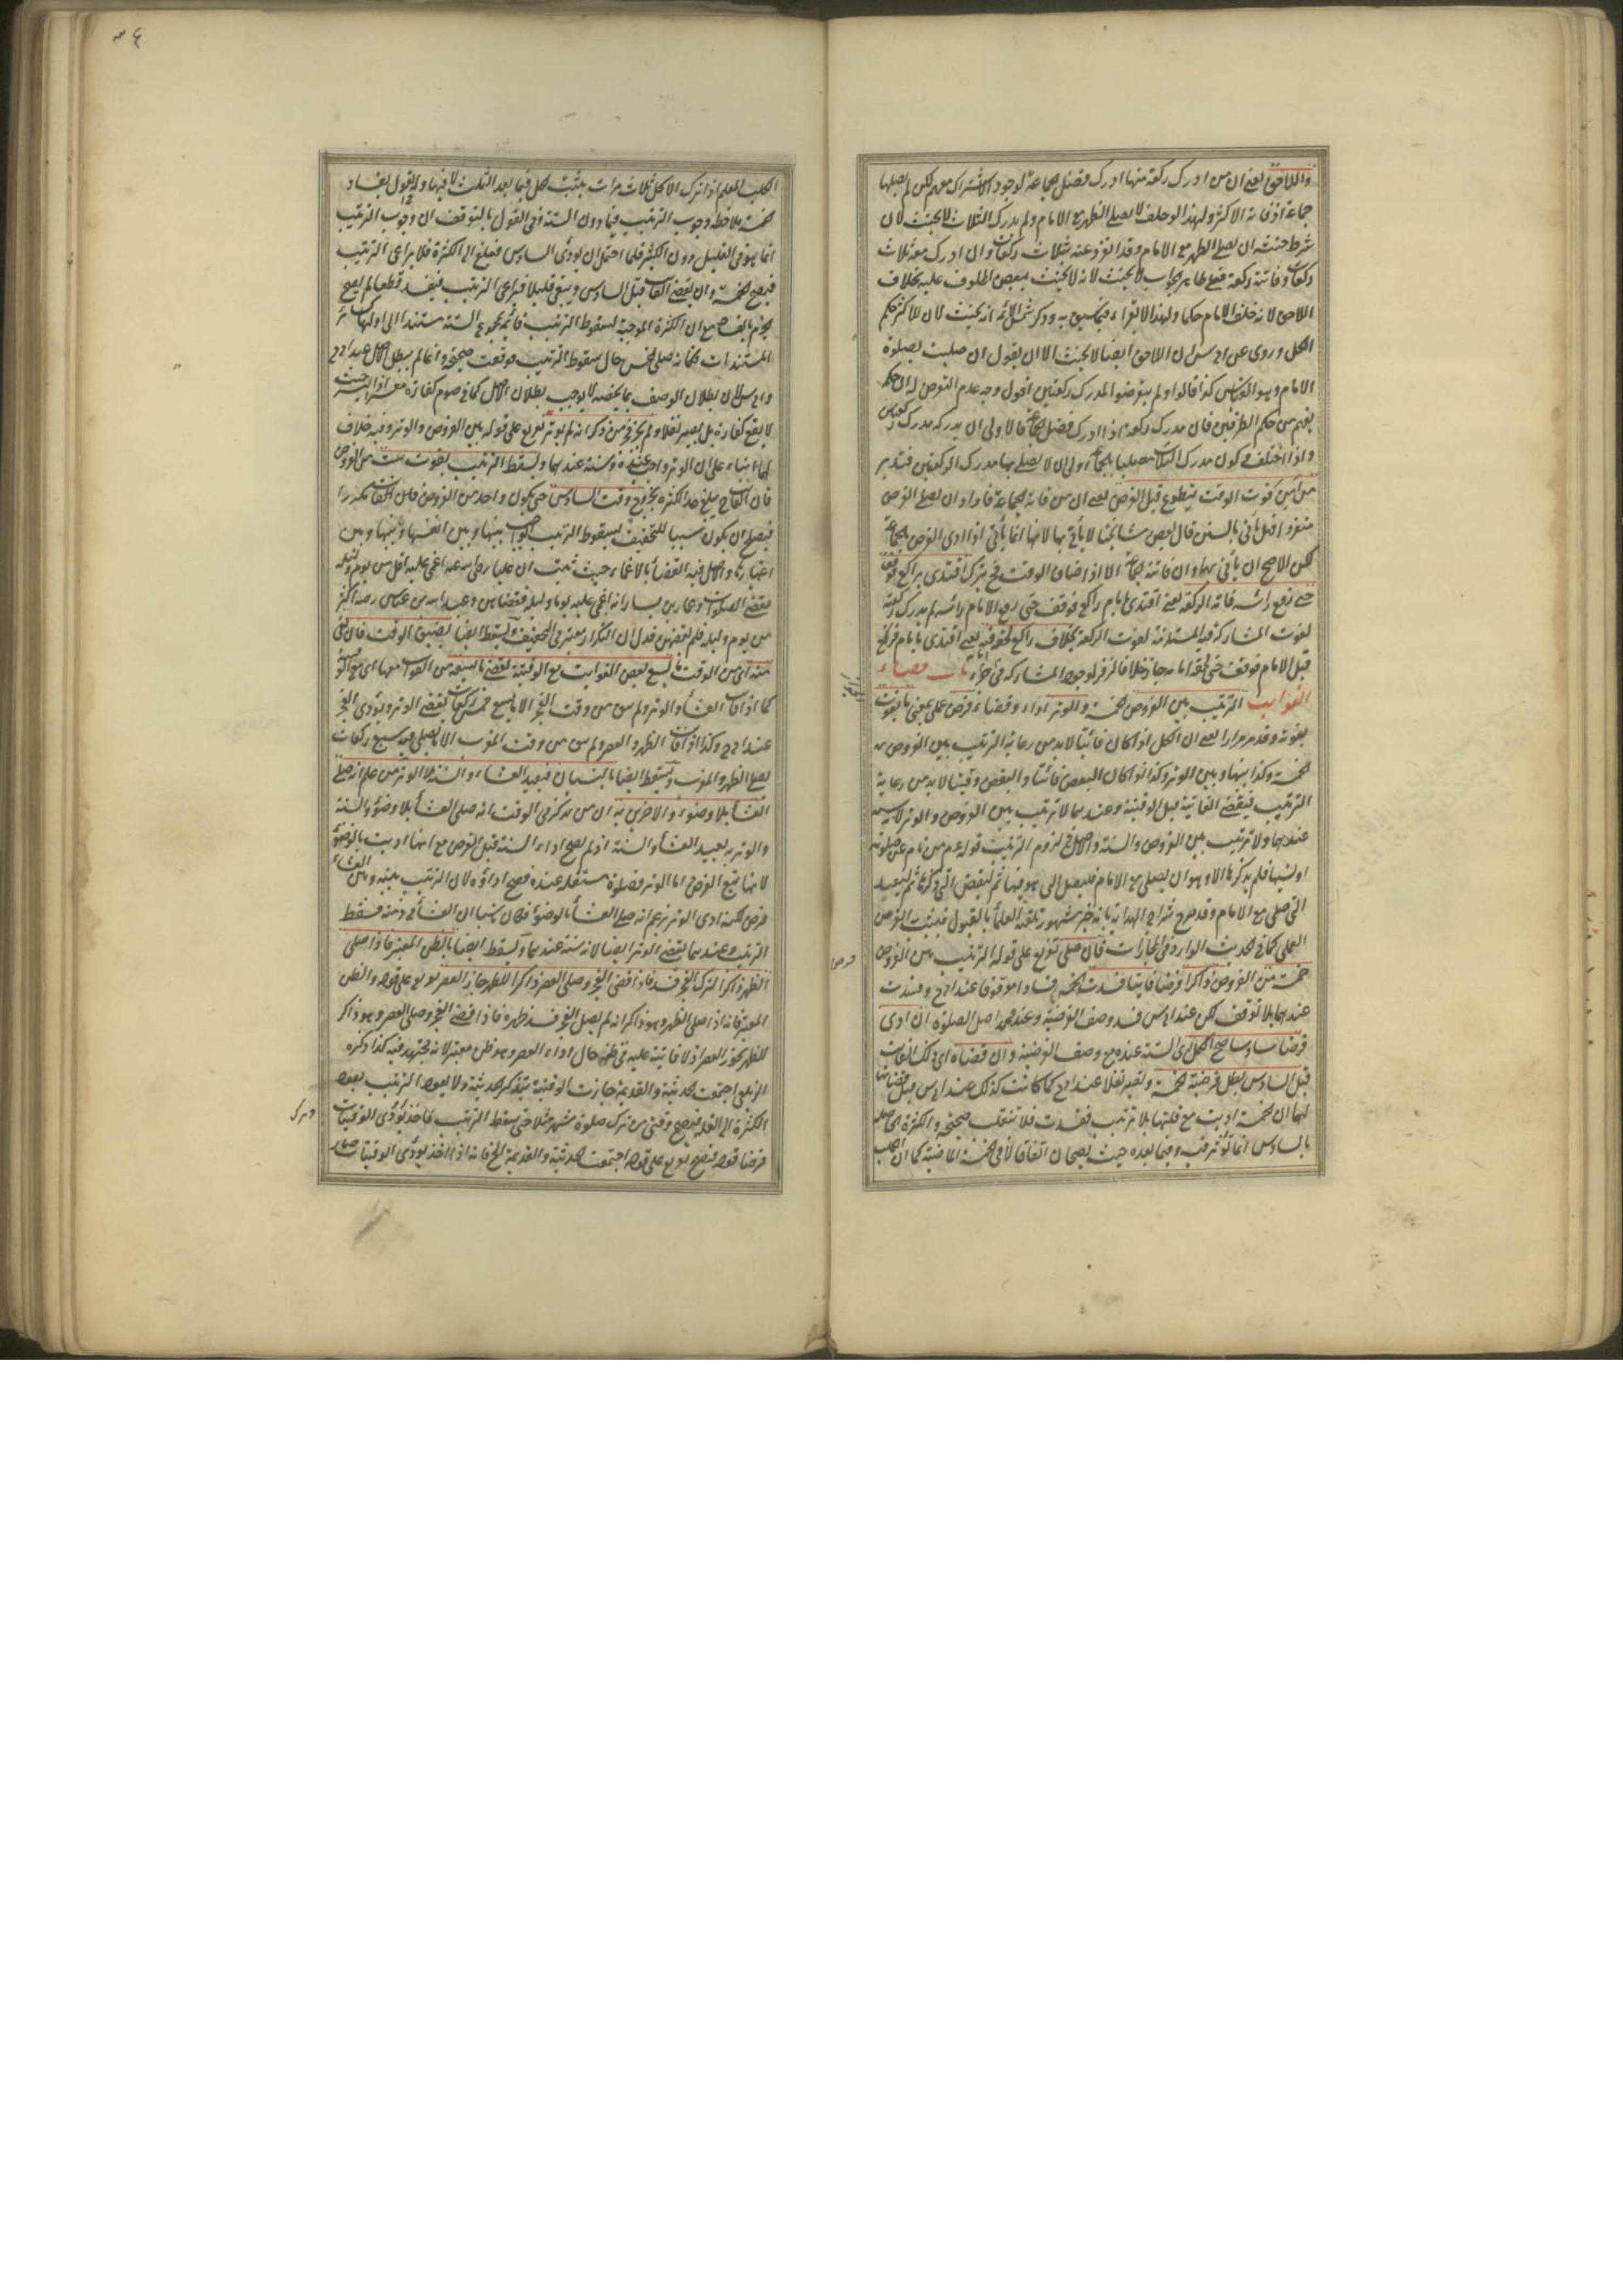 واللاحق يعني ان من ادرك ركعة منها ادرك فضل الجماعة لوجود الاشتراك معهم لكن لم يصلها
جماعة اذ فاته الاكثر ولهذا لو حلف لا يصلي الظهر مع الامام ولم يدرك الثلاث لا يحنث لان
شرط حنثه ان يصلي الظهر مع الامام وقد انفرد عنه بثلاث ركعات وان ادرك معه ثلاث
ركعات وفاتته ركعة فعلى ظاهر الجواب لا يحنث لانه لا يحنث ببعض المحلوف عليه بخلاف
اللاحق لانه خلف الامام حكما ولهذا لا يقراء فيما سبق به وذكر شمس الائمة انه يحنث لان للاكثر حكم
الكل وروى عن ابي س ان اللاحق ايضا لا يحنث الا ان يقول ان صليت بصلوة
الامام وهو القياس كذا قالوا ولم يتعرضوا لمدرك ركعتين اقول وجه عدم التعرض له ان حكمه
يفهم من حكم الطرفين فان مدرك ركعة اذا ادرك فضل الجماعة فالاولى ان يدركه مدرك ركعتين
واذا اختلف في كون مدرك الثلاث مصليا بالجماعة اولى ان لا يصلي بها مدرك الركعتين فتدبر
من امن فوت الوقت يتطوع قبل الفرض يعني ان من فاته الجماعة فاراد ان يصلي الفرض
منفردا فهل يأتي بالسنن قال بعض مشايخنا لا يأتي بها لانها انما يأتي اذا ادى الفرض بالجماعة
لكن الاصح ان يأتي بها وان فاتته الجماعة الا اذا ضاق الوقت فح يترك اقتدى براكع فوقف
حتى رفع رأسه فاته الركعة يعني اقتدى بامام راكع فوقف حتى رفع الامام رأسه لم يدرك ركعته
لفوت المشاركة فيه المستلزم لفوت الركعة بخلاف راكع لحقه فيه يعني اقتدى بامام فركع
قبل الامام فوقف حتى لحقه امامه جاز خلافا لزفر لوجود المشاركة في جزء باب قضاء
الفوايت الترتيب بين الفروض الخمسة والوتر اداء وقضاء فرض عملي يعني ما يفوت
بفوته وقد مر مرارا يعني ان الكل اذا كان فائتا لا بد من رعاية الترتيب بين الفروض
الخمسة وكذا بينها وبين الوتر وكذا اذا كان البعض فائتا والبعض وقتيا لا بد من رعاية
الترتيب فيقضي الفايتة قبل الوقتية وعندهما لا ترتيب بين الفروض والوتر لانه سنة
عندهما ولا ترتيب بين الفروض والسنة والاصل في لزوم الترتيب قوله عم من نام عن صلوة
او نسيها فلم يذكرها الا وهو ان يصلي مع الامام فليصل التي هو فيها ثم ليقض التي ذكرها ثم ليعيد
التي صلى مع الامام وقد صرح شراح الهداية بانه خبر مشهور تلقته العلماء بالقبول فيثبت به الفرض
العملي كما في الحديث الوارد في المحاذات فان صلى تفريع على قوله الترتيب بين الفروض
خمسة من الفروض ذاكرا فرضا فايتا فسدت الخمسة فسادا موقوفا عند ابي ح وفسدت
عندهما بلا توقف لكن عند ابي س فسد وصف الفرضية وعند محمد اصل الصلوة ان ادى
فرضا سادسا صح الكل اي الستة عنده مع وصف الفرضية وان قضاه اي ذلك الفايت
قبل السادس بطل فرضية الخمسة وتصير نفلا عند ابي ح كما كانت كذلك عند ابي س قبل قضائه
لهما ان الخمسة اديت مع قلتها بلا ترتيب ففسدت فلا تنقلب صحيحة والكثرة الحاصلة
بالسادس انما تؤثر فيه وفيما بعده حيث يصحان اتفاقا لا في الخمسة الماضية كما ان الكلب
فرض
الكلب المعلم اذا ترك الاكل ثلاث مرات يثبت الحل فيما بعد الثلث لا فيها وله القول بفساد
الخمسة ملاحظة وجوب الترتيب فيما دون الستة وفي القول بالتوقف ان وجوب الترتيب
انما هو في القليل دون الكثير فلما احتمل ان يؤدى السادس فبلغ الى الكثرة فلا يراعى الترتيب
فيصح الخمسة وان يقضى الفايت قبل السادس ويبقى قليلا فيراعى الترتيب فيفسد قطعا لم يصح
الجزم بالفساد مع ان الكثرة الموجبة لسقوط الترتيب قائمة بمجموع الستة مستندا الى اولها كما
المستندات فكانه صلى الخمس حال سقوط الترتيب فوقعت صحيحة وانما لم يبطل الاصل عند ابي ح
وابي س لان بطلان الوصف بما يخصه لا يوجب بطلان الاصل كما في صوم كفارة معسر اذا ايسر حيث
لا يقع كفارة بل يصير نفلا ولم يجز فجر من ذكر انه لم يوتر تفريع على قوله بين الفروض والوتر وفيه خلاف
لهما بناء على ان الوتر واجب عنده وسنة عندهما ويسقط الترتيب بفوت ست من الفروض
فان الفايت ح يبلغ حد الكثرة بخروج وقت السادس حتى يكون واحد من الفروض مكررا
فيصلح ان يكون سببا للتخفيف بسقوط الترتيب الواجب بينها وبين انفسها وبينها وبين
اغيارها والاصل فيه القضاء بالاغماء حيث ثبت ان عليا رضي الله عنه اغمي عليه اقل من يوم وليلة
فقضى الصلوات وعمار بن ياسر انه اغمي عليه يوما وليلة فقضاهن وعبد الله بن عباس رضه اكثر
من يوم وليلة فلم يقضهن فدل ان التكرار معتبر في التخفيف ويسقط ايضا بضيق الوقت فان بقي
منه اي من الوقت ما يسع بعض الفوايت مع الوقتية يقضي ما يسعه من الفوايت معها اي مع الوقتية
كما اذا فات العشاء والوتر ولم يبق من وقت الفجر الا ما يسع خمس ركعات يقضي الوتر ويؤدى الفجر
عند ابي ح وكذا اذا فات الظهر والعصر ولم يبق من وقت المغرب الا ما يصلي فيه سبع ركعات
يصلي الظهر والمغرب ويسقط ايضا بالنسيان فيعيد العشاء والسنة لا الوتر من علم انه صلى
العشاء بلا وضوء والاخريين به ان من تذكر في الوقت انه صلى العشاء بلا وضوء والسنة
والوتر به يعيد العشاء والسنة اذ لم يصح اداء السنة قبل الفرض مع انها اديت بالوضوء
لانها تبع الفرض اما الوتر فصلوة مستقلة عنده فصح اداؤه لان الترتيب بينه وبين العشاء
فرض لكنه ادى الوتر بزعم انه صلى العشاء بالوضوء فكان ناسيا ان العشاء في ذمته فسقط
الترتيب وعندهما يقضي الوتر ايضا لانه سنة عندهما ويسقط ايضا بالظن المعتبر فاذا صلى
الظهر ذاكرا لترك الفجر فسد فاذا قضى الفجر وصلى العصر ذاكرا للظهر جاز العصر تفريع على قوله والظن
المعتبر فانه اذا صلى الظهر وهو ذاكر انه لم يصل الفجر فسد ظهره فاذا قضى الفجر وصلى العصر وهو ذاكر
للظهر يجوز العصر اذ لا فايتة عليه في ظنه حال اداء العصر وهو ظن معتبر لانه مجتهد فيه كذا ذكره
الزيلعي اجتمعت الحديثة والقديمة جازت الوقتية بتذكر الحديثة ولا يعود الترتيب بعود
الكثرة الى القلة فيصح وقتي من ترك صلوة شهر مثلا حتى سقط الترتيب فاخذ يؤدى الوقتيات
فرضا قوله فيصح تفريع على قوله اجتمعت الحديثة والقديمة الخ فانه اذا اخذ يؤدى الوقتيات صار